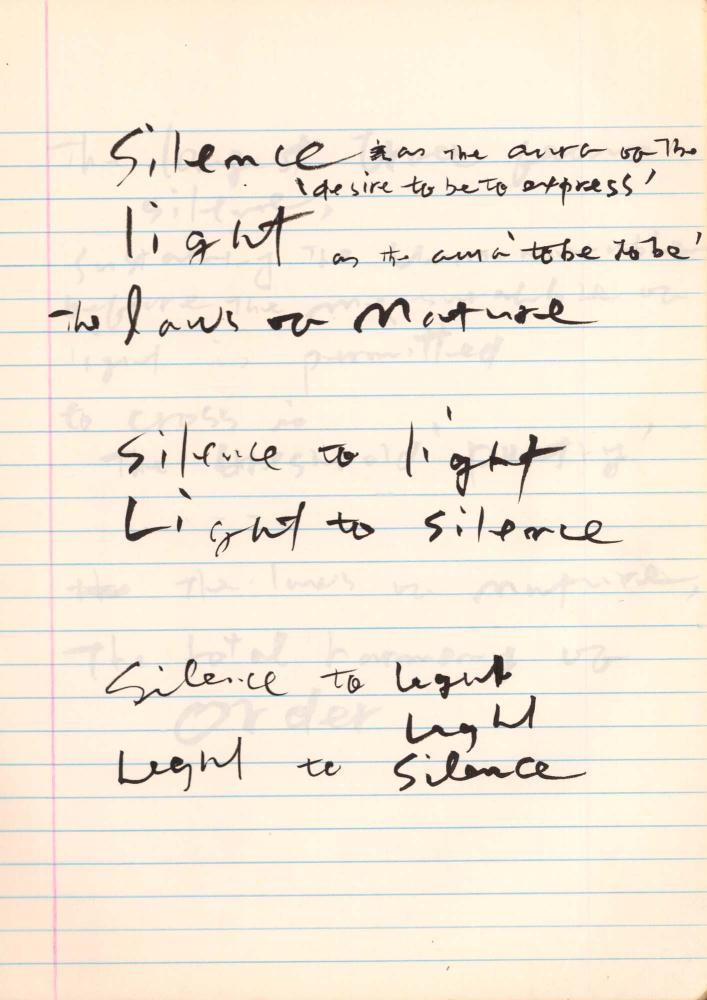 Silence as the aura of the
'desire to be to express'
light as the aura 'to be to be'
The laws of Nature
Silence to light
Light to Silence
Silence to Light
Light
Light to Silence